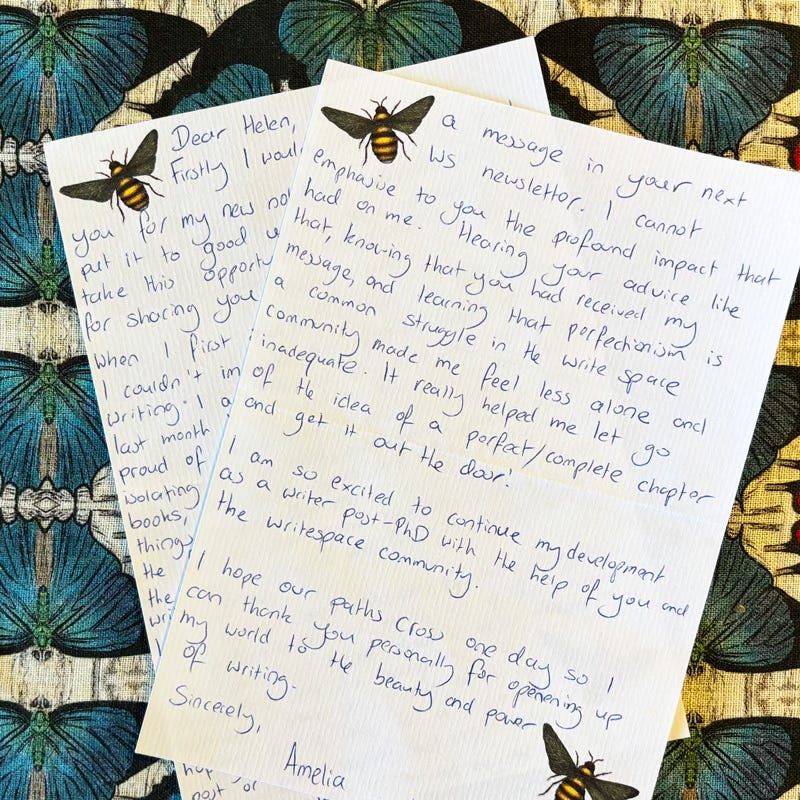 Dear Helen,
Firstly I woul
you for my new no
put it to good u
take this opport
for sharing you
When I first
I couldn't im
writing. I a
last month
proud of
isolating
books,
things
the
the
wri
a message in your next
WS newsletter. I cannot
emphasise to you the profound impact that
had on me. Hearing your advice like
that, knowing that you had received my
message, and learning that perfectionism is
a common struggle in the write space
community made me feel less alone and
inadequate. It really helped me let go
of the idea of a perfect/complete chapter
and get it out the door!
I am so excited to continue my development
as a writer post-PhD with the help of you and
the writespace community.
I hope our paths cross one day so I
can thank you personally for openening up
my world to the beauty and power
of writing.
Sincerely,
Amelia